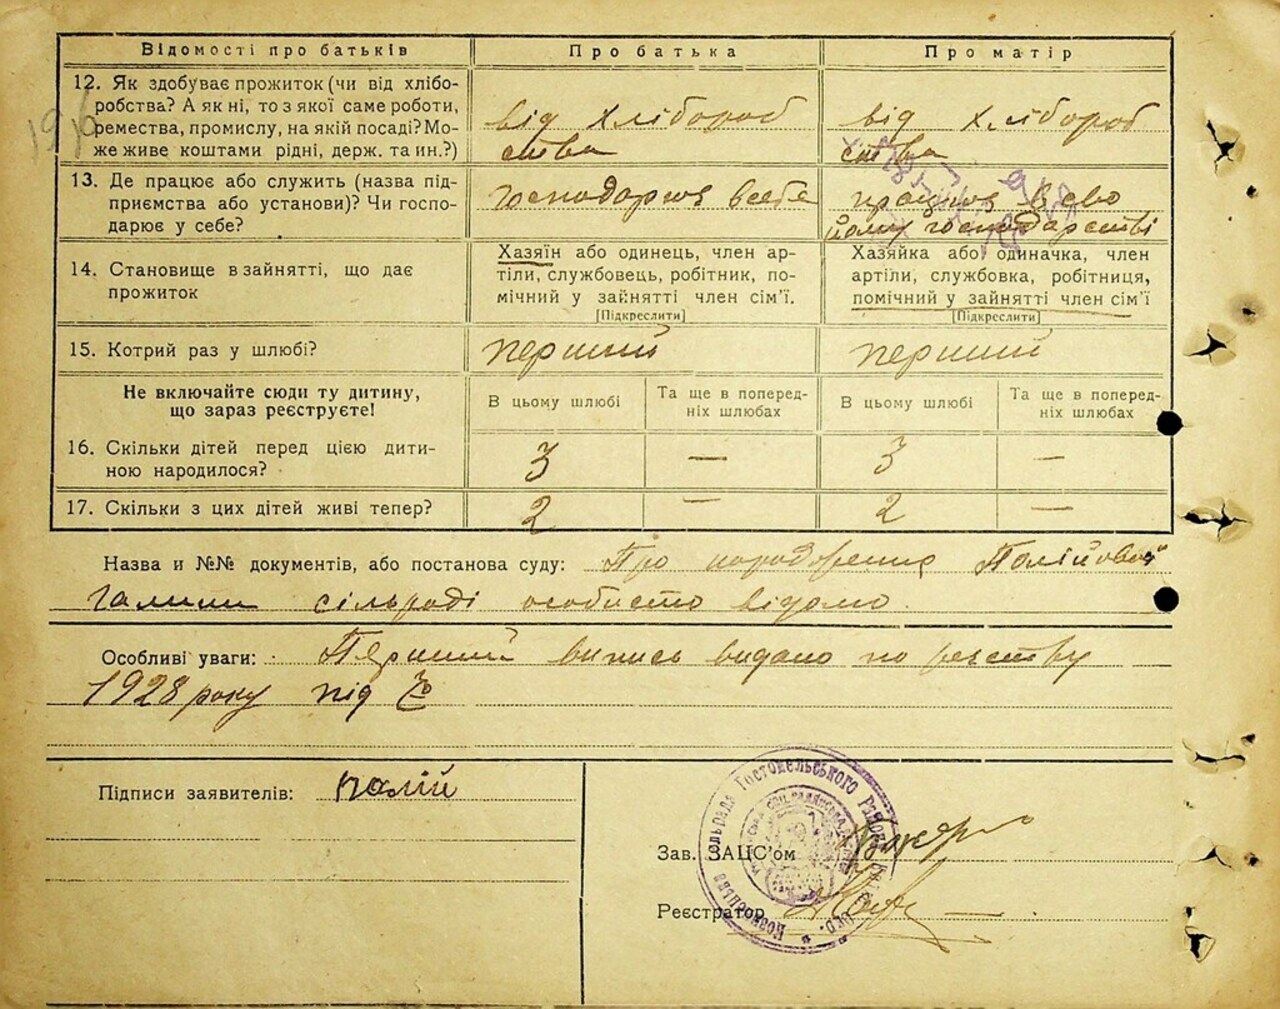 Відомості про батьків
Про батька
Про матір
12. Як здобуває прожиток (чи від хлібо-
робства? А як ні, то з якої саме роботи,
ремества, промислу, на якій посаді? Мо-
же живе коштами рідні, держ. та ин.?)
від хлібороб
ства
від хлібороб
ства
13. Де працює або служить (назва під-
приємства або установи)? Чи госпо-
дарює у себе?
господарює в себе
працює в сво
йому господарстві
14. Становище в зайнятті, що дає
прожиток
Хазяїн або одинець, член ар-
тіли, службовець, робітник, по-
мічний у зайнятті член сім'ї.
[Підкреслити]
Хазяйка або одиначка, член
артіли, службовка, робітниця,
помічний у зайнятті член сім'ї
[Підкреслити]
15. Котрий раз у шлюбі?
перший
перший
Не включайте сюди ту дитину,
що зараз реєструєте!
В цьому шлюбі
Та ще в поперед-
ніх шлюбах
В цьому шлюбі
Та ще в поперед-
ніх шлюбах
16. Скільки дітей перед цією дити-
ною народилося?
3
—
3
—
17. Скільки з цих дітей живі тепер?
2
—
2
—
Назва и №№ документів, або постанова суду: Про народження Палійової
Галини сільраді особисто відомо.
Особливі уваги: Перший випись видано по реєстру
1928 року під
Підписи заявителів: Палій
Зав. ЗАЦС'ом
Реєстратор
сільрада Гостомельського Району Київ Окр.